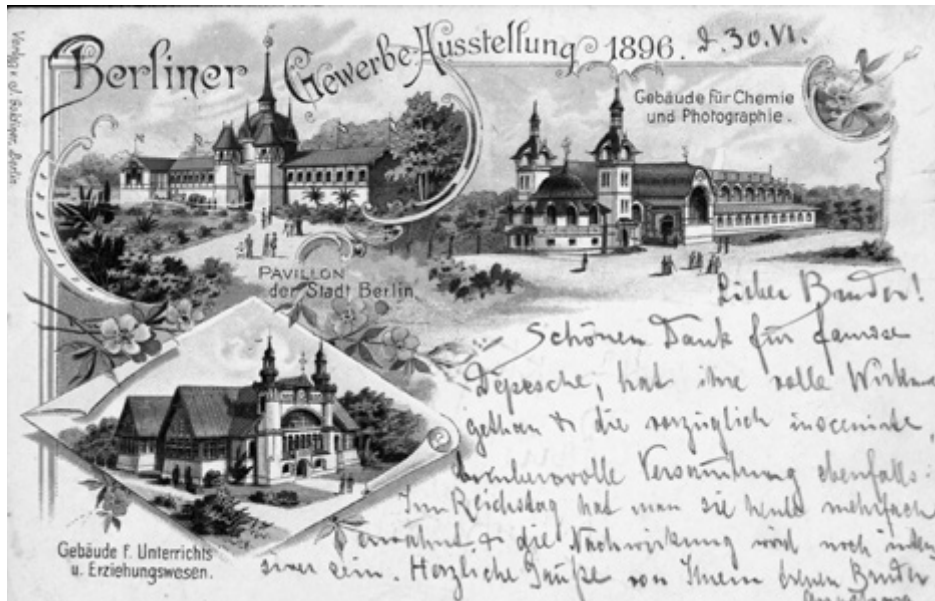 Berliner Gewerbe-Ausstellung 1896. d. 30.VI.
Gebäude für Chemie
und Photographie.
PAVILLON
der Stadt Berlin
Gebäude f. Unterrichts
u. Erziehungswesen.
Lieber Bruder!
Schönen Dank für famose
Depesche, hat ihre volle
gethan & die vorzüglich inscenirte,
wundervolle ebenfalls.
Im Reichstag hat man sie heute mehrfach
erwähnt & die Nachwirkung wird noch
sein. Herzliche Grüße von Bruder